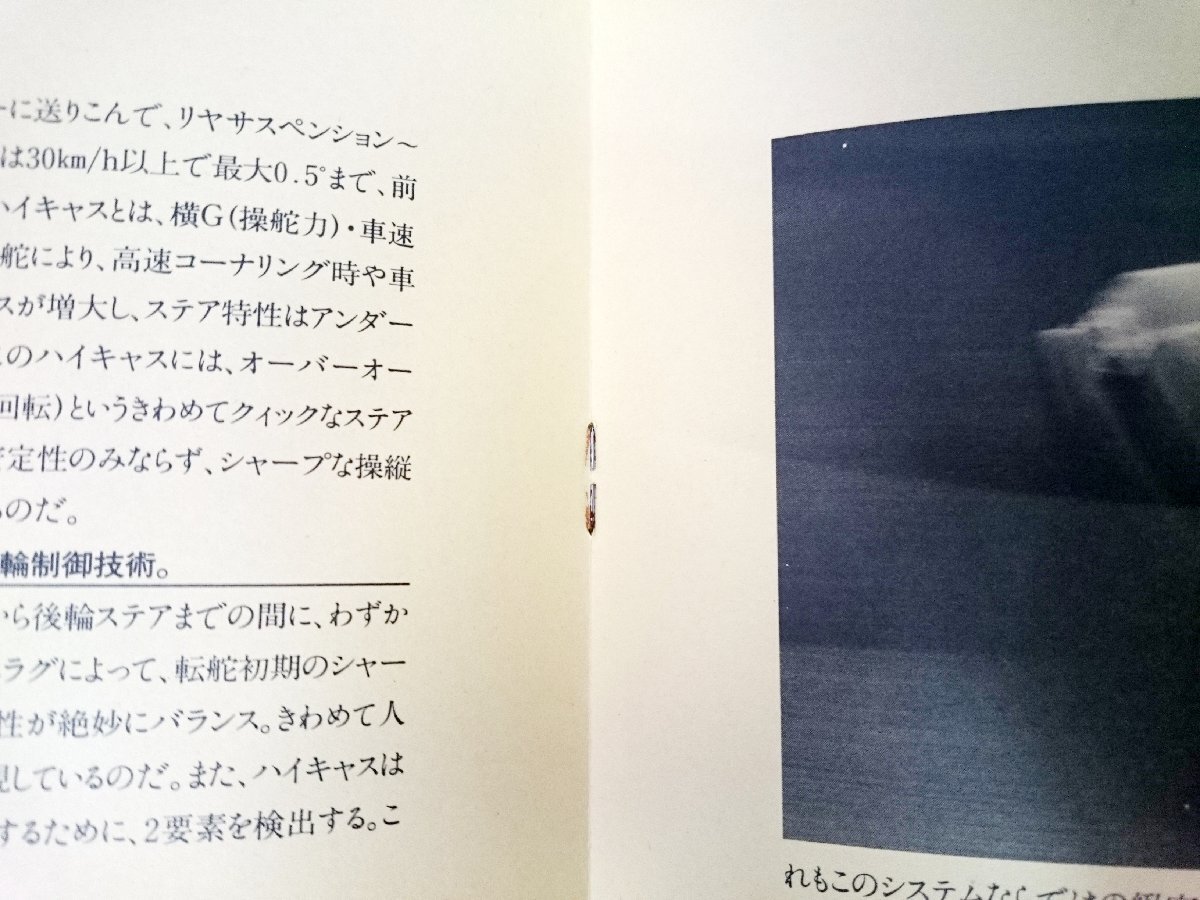 ーに送りこんで、リヤサスペンション〜
は30km/h以上で最大0.5°まで、前
ハイキャスとは、横G(操舵力)・車速
舵により、高速コーナリング時や車
スが増大し、ステア特性はアンダー
このハイキャスには、オーバーオー
回転)というきわめてクィックなステア
定性のみならず、シャープな操縦
ものだ。
輪制御技術。
から後輪ステアまでの間に、わずか
ラグによって、転舵初期のシャー
性が絶妙にバランス。きわめて人
現しているのだ。また、ハイキャスは
するために、2要素を検出する。こ
れもこのシステムならではの